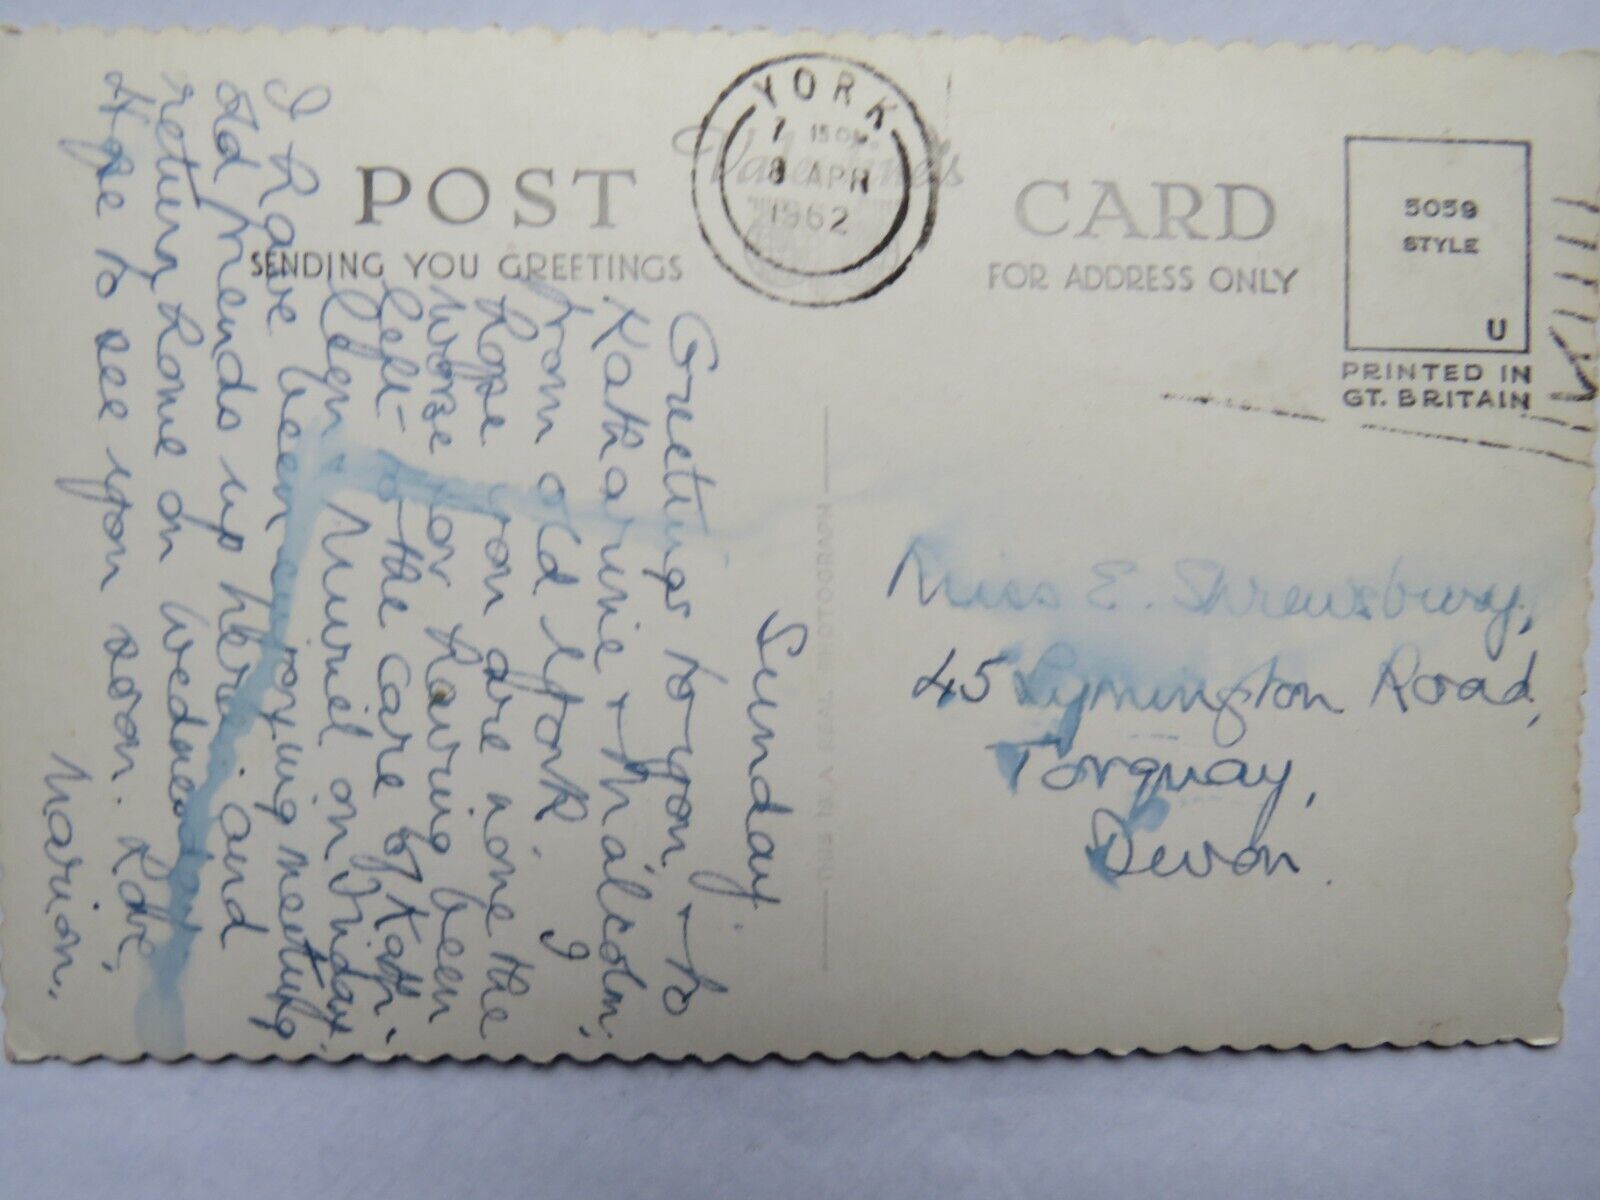 POST CARD
Valentine's
SENDING YOU GREETINGS
FOR ADDRESS ONLY
YORK
7 15 PM
8 APR
1962
5059
STYLE
U
PRINTED IN
GT. BRITAIN
THIS IS A REAL PHOTOGRAPH
Sunday.
Greetings to you, & to
Katharine & Malcolm,
from old York. I
hope you are none the
worse for having been
left to the care of Kath.
Muriel on Friday.
I have been meeting
old friends up here and
return home on Wednesday
Hope to see you soon. Love,
Marion.
Miss E. Shrewsbury,
45 Lymington Road,
Torquay,
Devon.